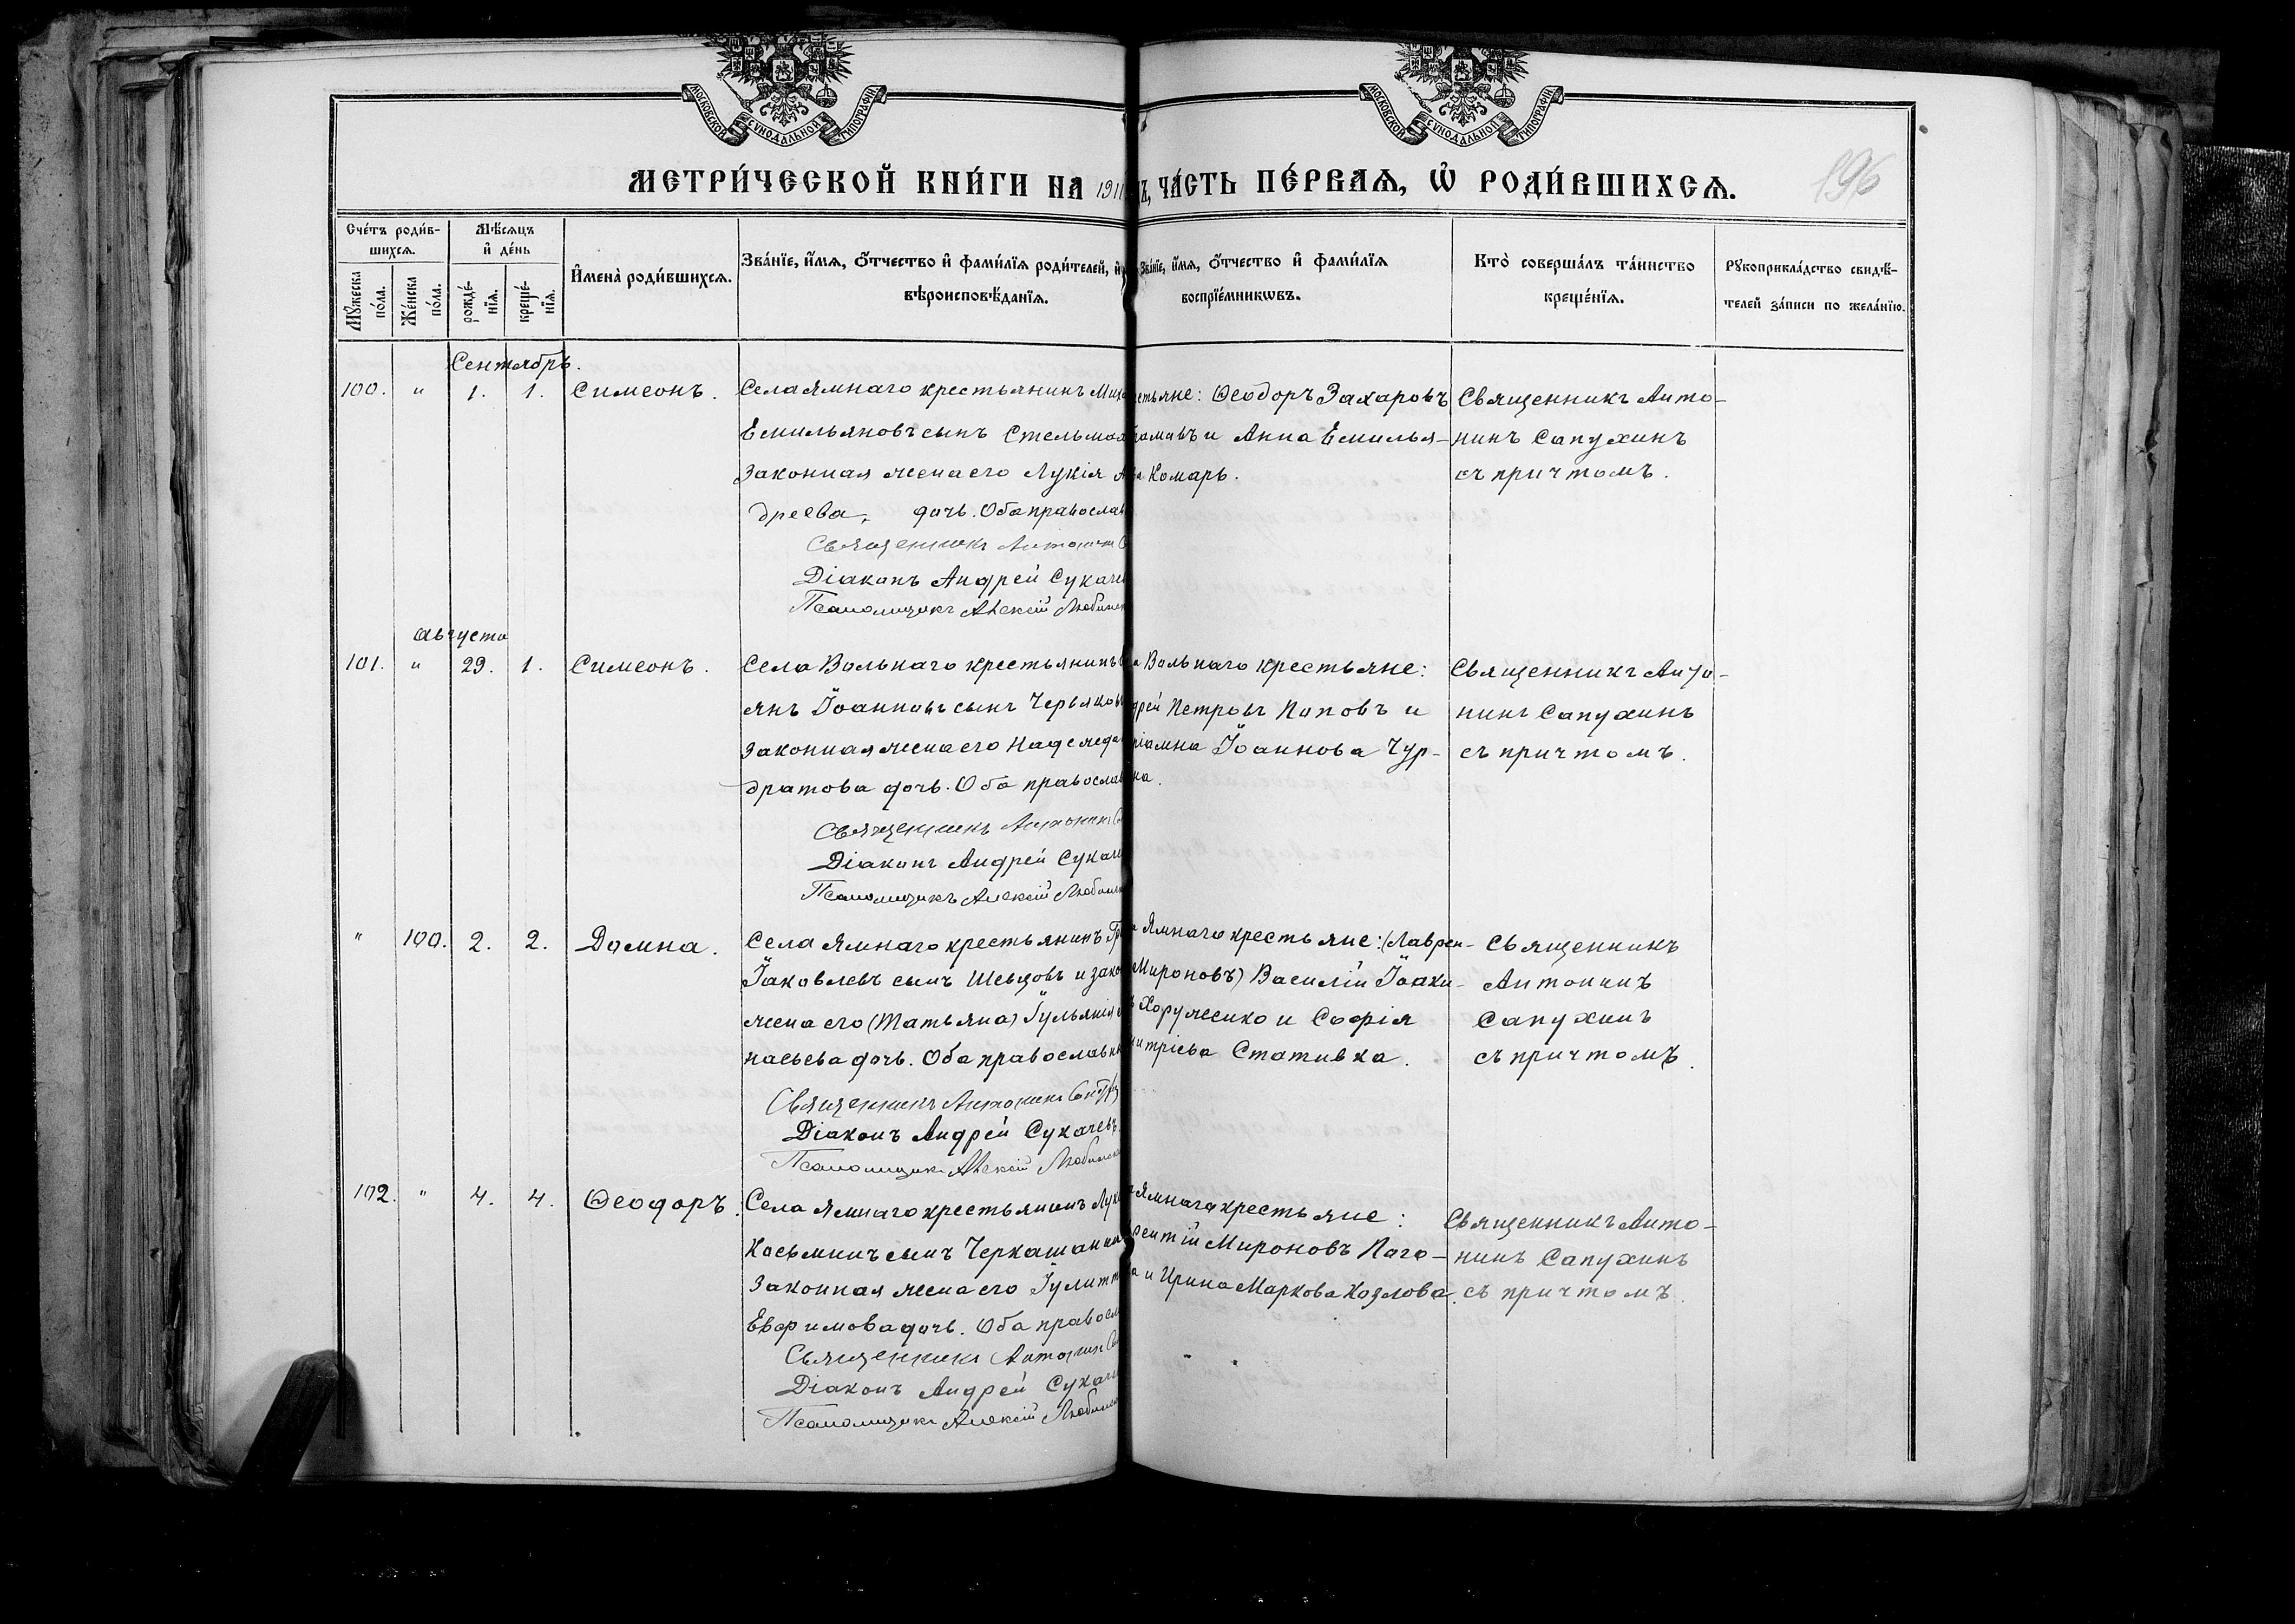 МОСКОВСКОЙ СѴНОДАЛЬНОЙ ТИПОГРАФІИ
МОСКОВСКОЙ СѴНОДАЛЬНОЙ ТИПОГРАФІИ
МЕТРИ́ЧЕСКОЙ КНИ́ГИ НА 1911
Ъ, ЧА́СТЬ ПЕ́РВАѦ, Ѡ РОДИ́ВШИХСѦ.
196
Сче́тъ роди́в-
шихсѧ.
Мѣ́сѧцъ
и҆ де́нь
Мꙋ́жеска
по́ла.
Же́нска
по́ла.
рожде́-
нїѧ.
креще́-
нїѧ.
И҆мена̀ роди́вшихсѧ.
Зва́нїе, и҆́мѧ, ѻ҆́тчество и҆ фами́лїѧ роди́телей, и҆
вѣроисповѣ́данїѧ.
Зва́нїе, и҆́мѧ, ѻ҆́тчество и҆ фами́лїѧ
воспрїе́мникѡвъ.
Кто̀ соверша́лъ та́инство
креще́нїѧ.
Рꙋкоприкла́дство свидѣ́-
телей за́писи по жела́нїю.
Сентябрь.
100. " 1. 1. Симеонъ.
Села Ямнаго крестьянинъ Миха
Емильяновъ сынъ Стельмах
законная жена его Лукія Ан
дреева, дочь. Оба православ
Священникъ Антонинъ С
Діаконъ Андрей Сукаче
Псаломщикъ Алексій Любимск
стьяне: Ѳеодоръ Захаровъ
и Анна Емилья-
ва Комарь.
Священникъ Анто-
нинъ Сапухинъ
съ причтомъ.
Августа
101. " 29. 1. Симеонъ.
Села Вольнаго крестьянинъ
янъ Іоанновъ сынъ Червяков
законная жена его Надежда
дратова дочь. Оба православ
Священникъ Антонинъ С
Діаконъ Андрей Сукаче
Псаломщикъ Алексій Любимск
а Вольнаго крестьяне:
дрей Петровъ Поповъ и
ріамна Іоаннова Чур-
на.
Священникъ Анто-
нинъ Сапухинъ
съ причтомъ.
" 100. 2. 2. Домна.
Села Ямнаго крестьянинъ Гр
Іаковлевъ сынъ Шевцовъ и зако
жена его (Татьяна) Іульянія
насьева дочь. Оба православн
Священникъ Антонинъ Сапух
Діаконъ Андрей Сукачевъ
Псаломщикъ Алексій Любимск
а Ямнаго крестьяне: (Лаврен-
Мироновъ) Василій Іоаки-
ъ Хоружико и Софія
итріева Стативка.
Священникъ
Антонинъ
Сапухинъ
съ причтомъ.
102. " 4. 4. Ѳеодоръ.
Села Ямнаго крестьянинъ Лук
Косьминъ сынъ Черкашанин
законная жена его Іулитта
Евфимова дочь. Оба правосл
Священникъ Антонинъ Са
Діаконъ Андрей Сукаче
Псаломщикъ Алексій Любимск
а Ямнаго крестьяне:
рентій Мироновъ Паго-
ва и Ирина Маркова Козлова.
Священникъ Анто-
нинъ Сапухинъ
съ причтомъ.